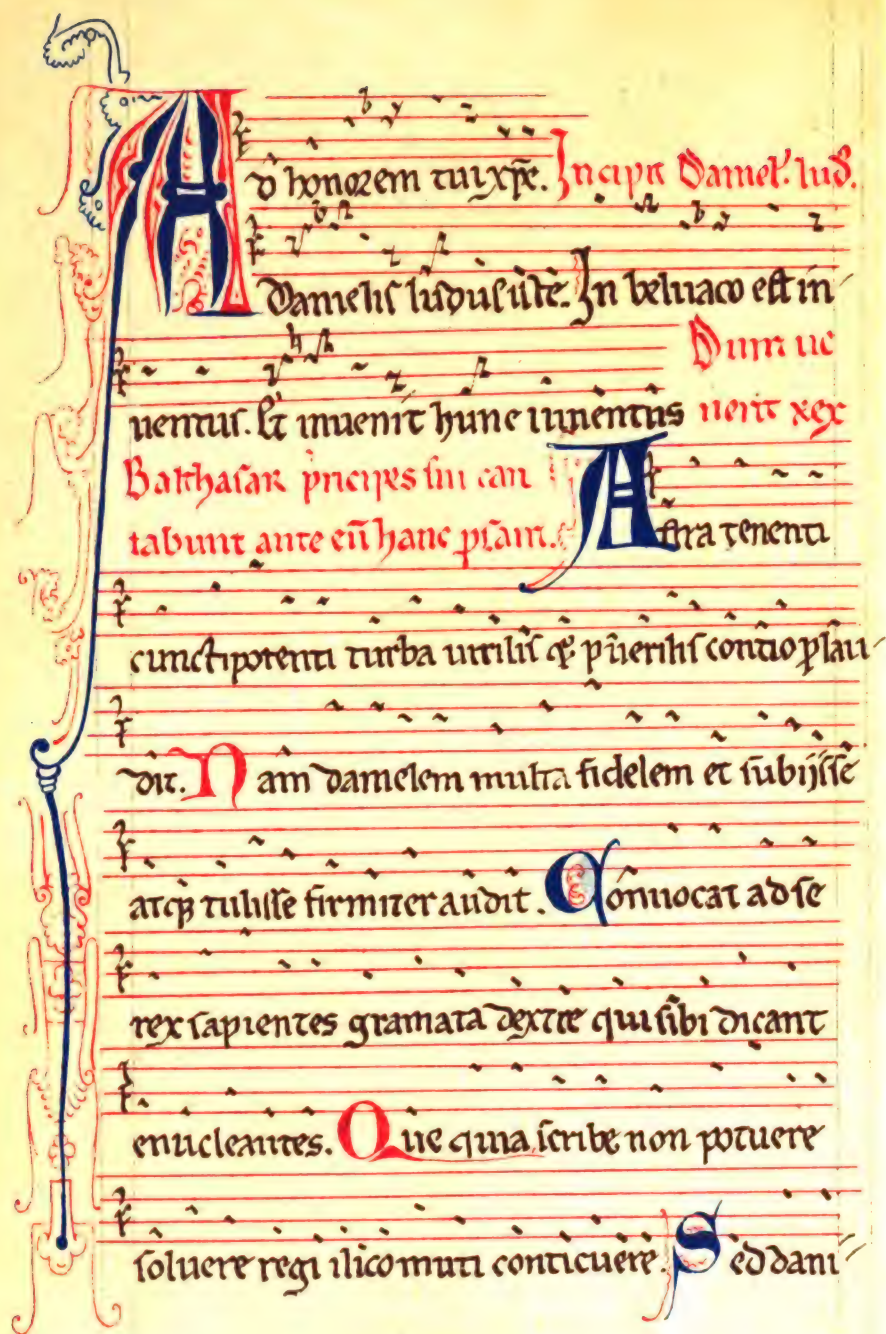 Ad honorem tui xp̄e. Incipit Daniel'. lud'.
Danielis ludus iste. In beluaco est in
uentus. Et inuenit hunc iuuentus Dum ue
nerit rex
Balthasar p̄ncipes sui can
tabunt ante eū hanc p̄sam. Astra tenenti
cunctipotenti turba uirilis q̄ꝫ puerilis contio plau
dit. Nam danielem multa fidelem et subijsse
atqꝫ tulisse firmiter audit. Conuocat ad se
rex sapientes gramata dextre qui sibi dicant
enucleantes. Que quia scribe non potuere
soluere regi ilico muti conticuere. Sed dani